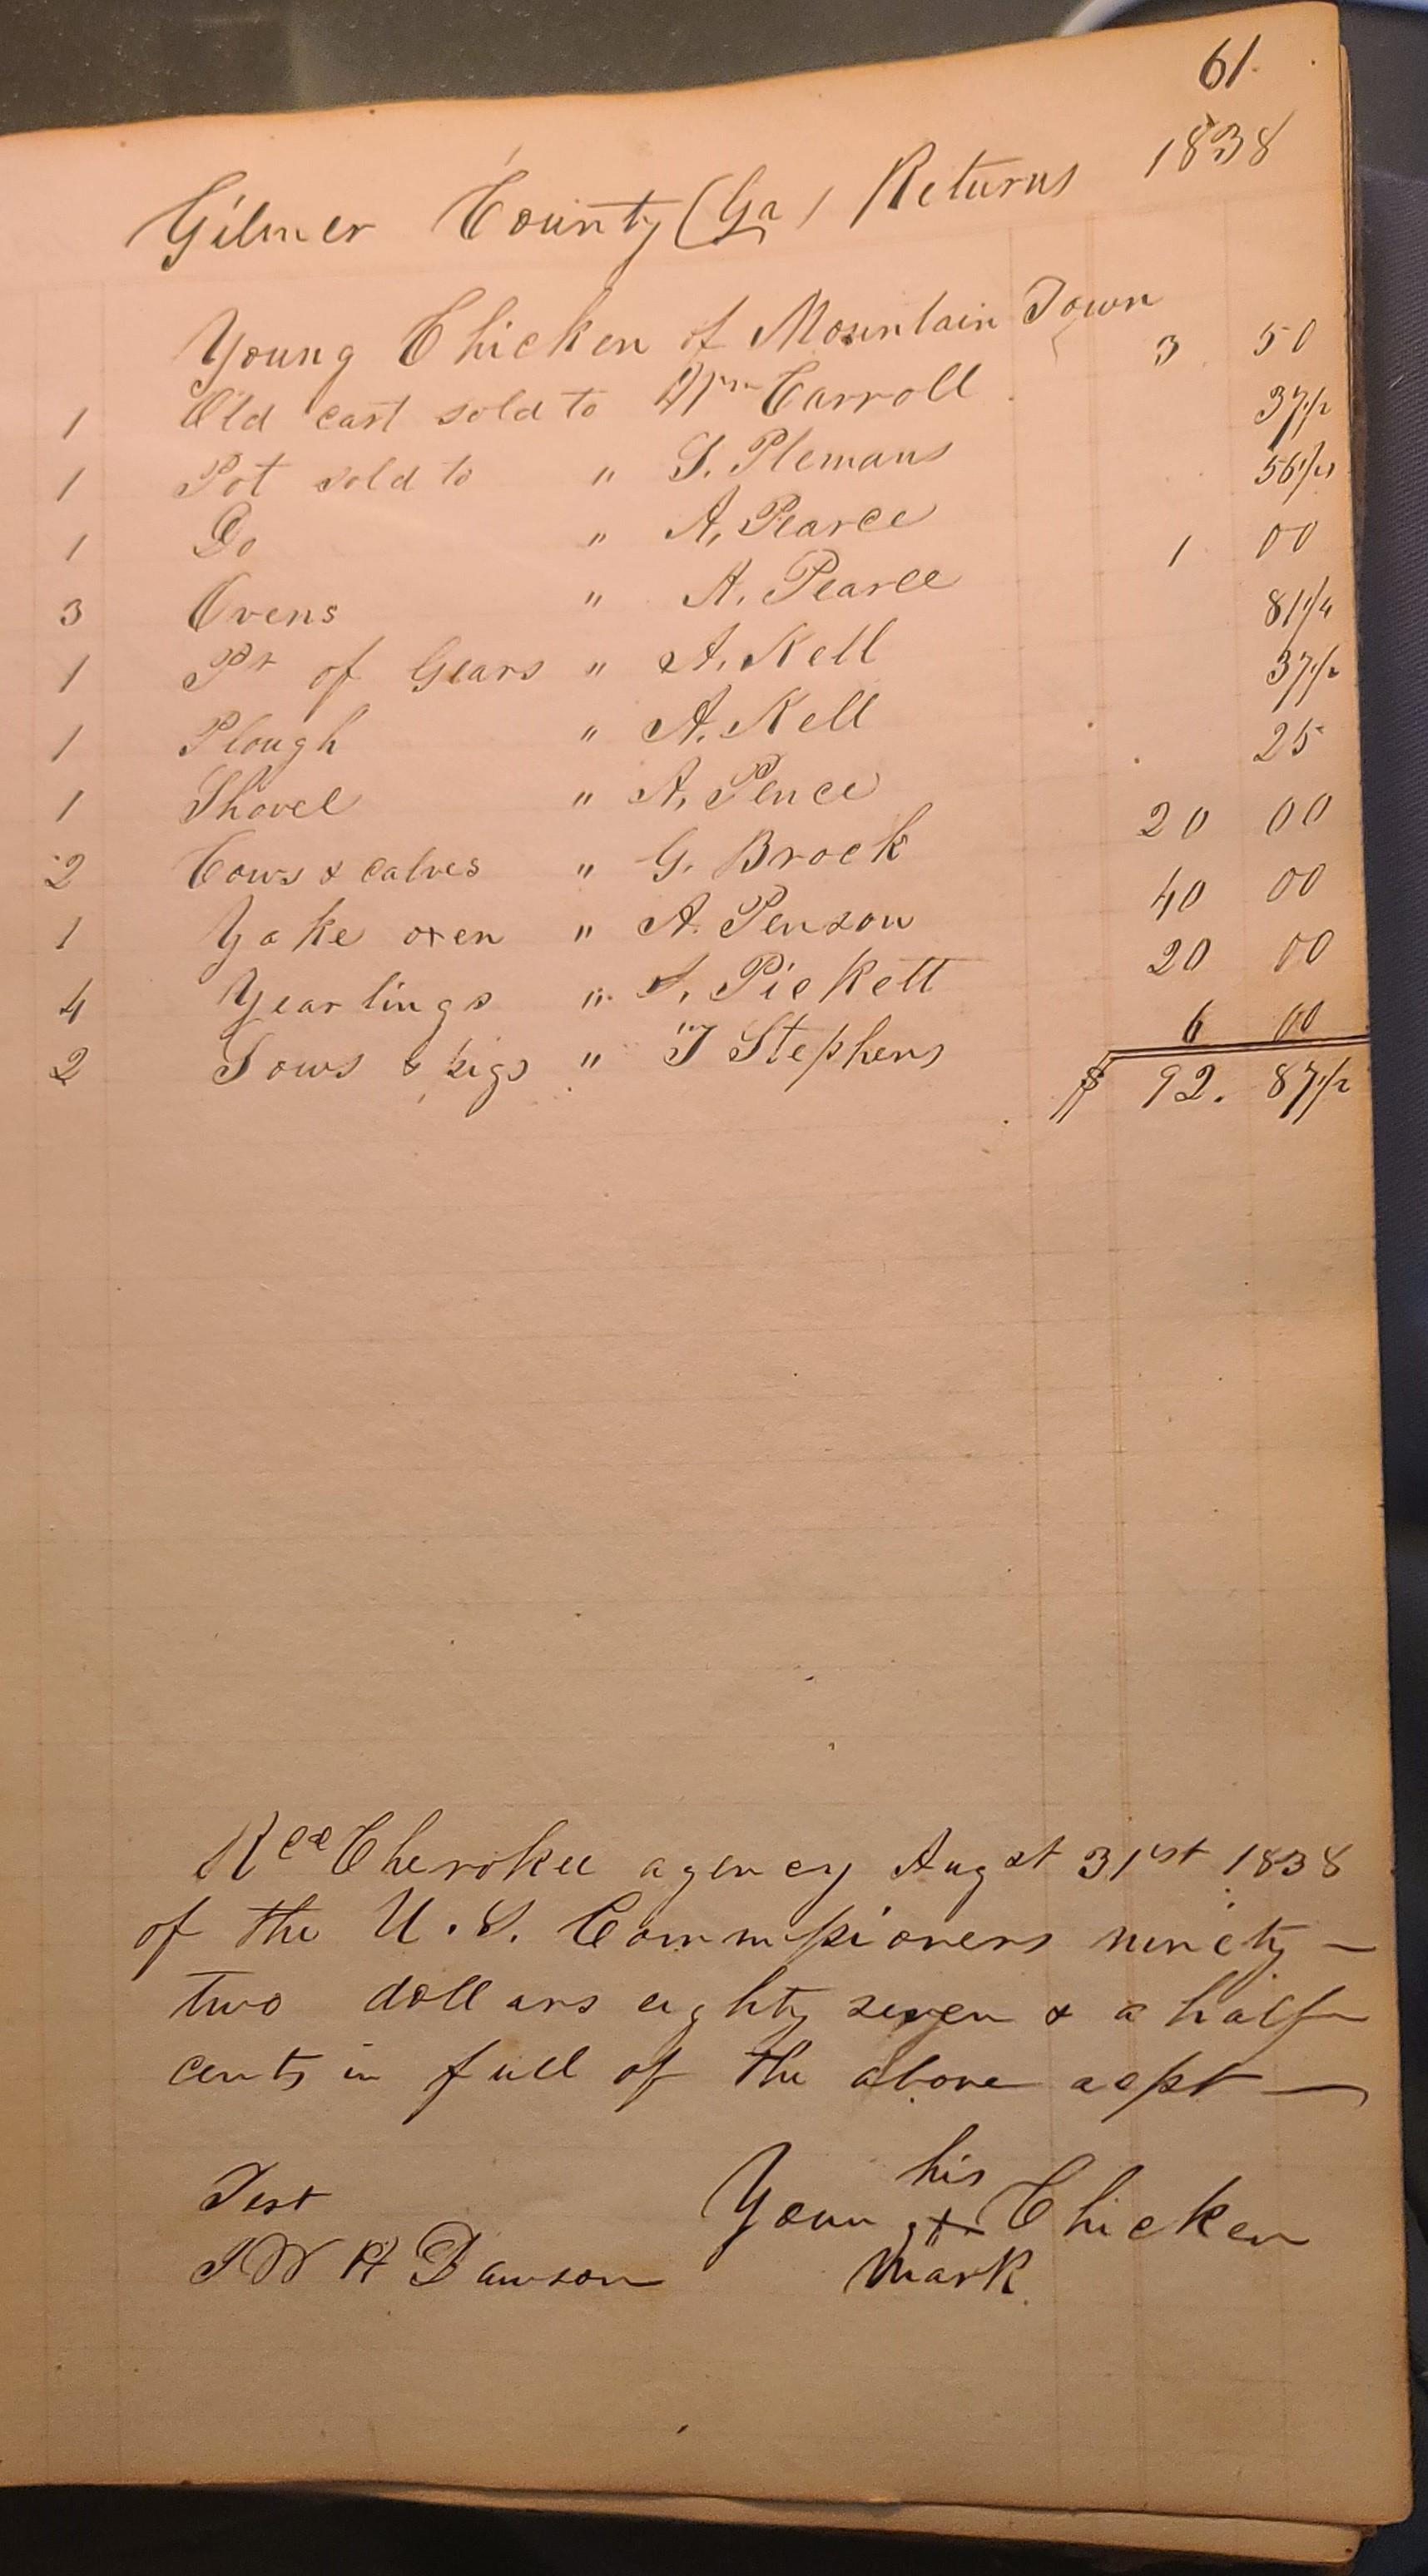 61.
Gilmer County (Ga) Returns 1838
Young Chicken of Mountain Town
1 Old cart sold to Wm Carroll 3 50
1 Pot sold to " S. Plemans 37 1/2
1 Do " A. Pearce 56 1/4
3 Ovens " A. Pearce 1 00
1 Pr of Gears " A. Kell 81 1/4
1 Plough " A. Kell 37 1/2
1 Shovel " A. Pence 25
2 Cows & calves " G. Brock 20 00
1 Yoke oxen " A. Penson 40 00
4 Yearlings " S. Pickett 20 00
2 Sows & pigs " T Stephens 6 00
$ 92. 87 1/2
Recd Cherokee agency Augst 31st 1838
of the U.S. Commissioners ninety –
two dollars eighty seven & a half
cents in full of the above acpt —
his
Test Youn g x Chicken
J W H Dawson mark